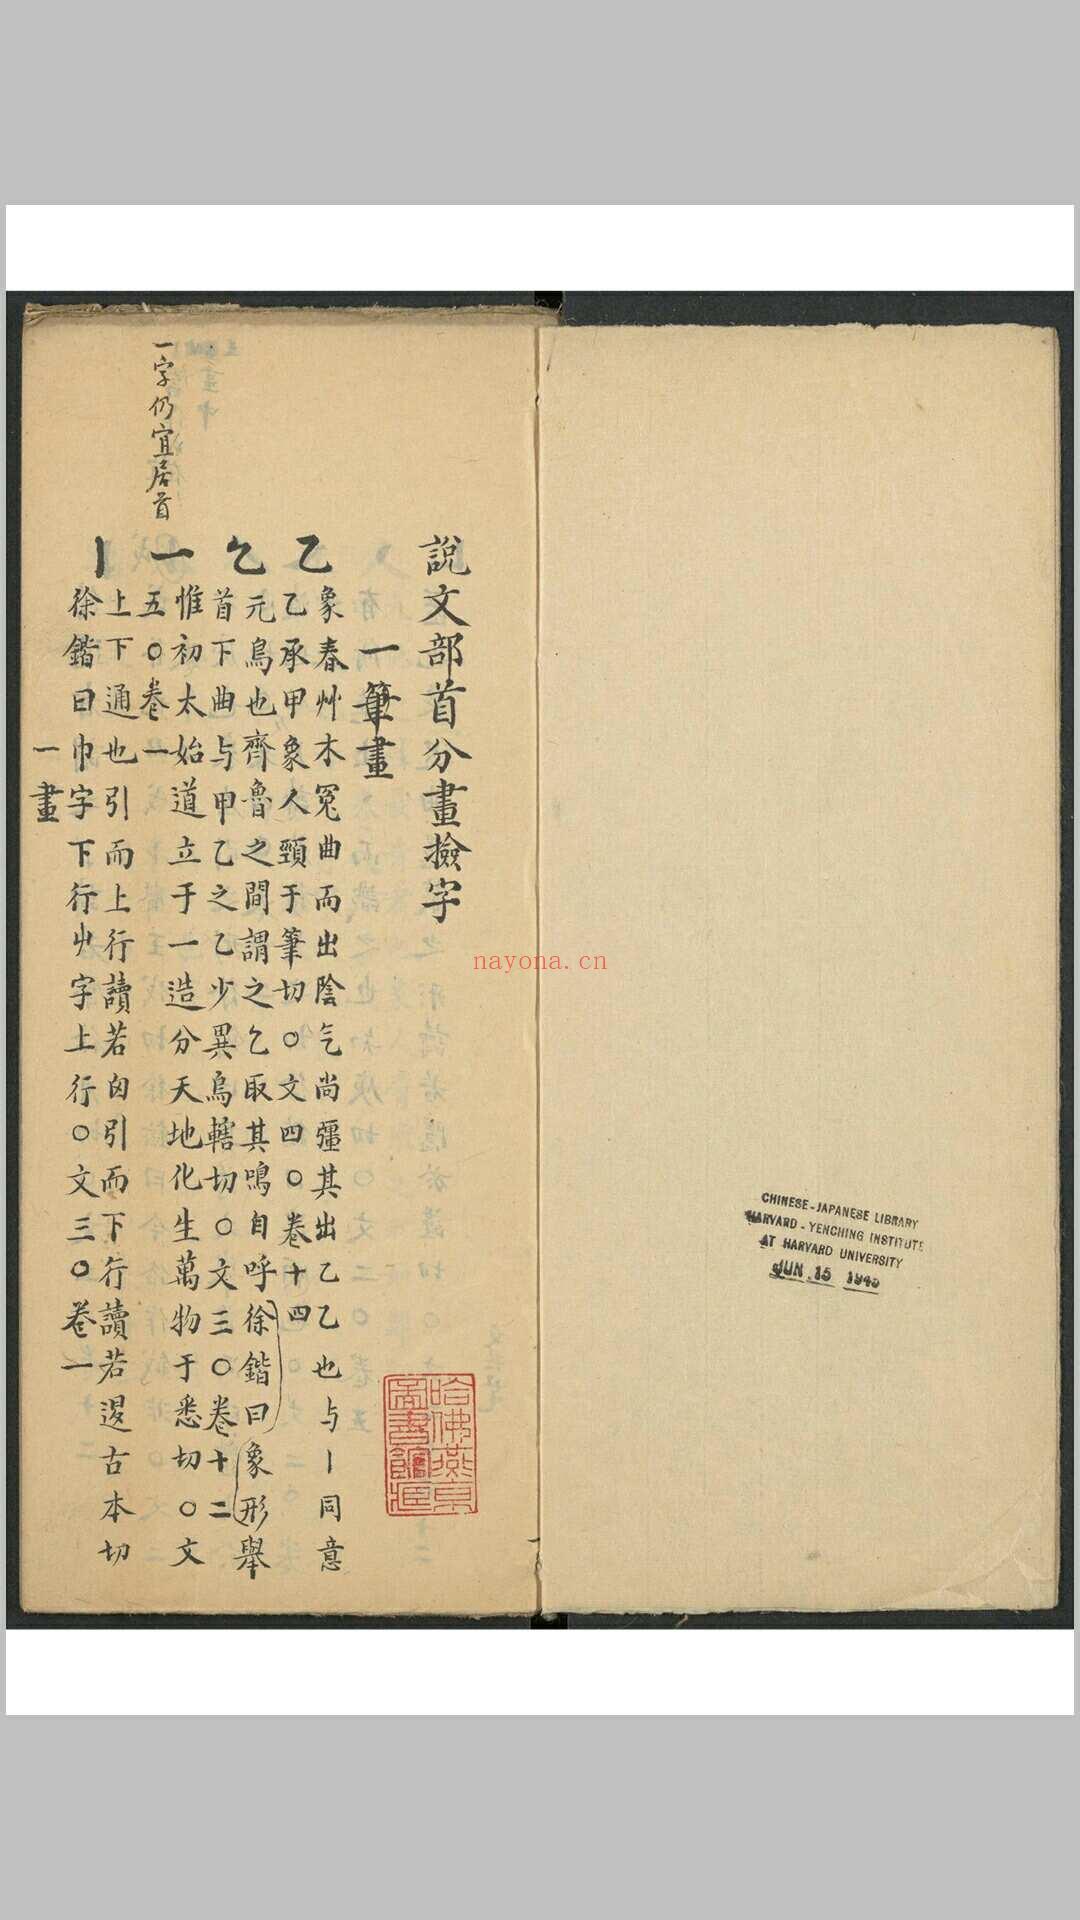 說文部首分畫撿字
一筆畫
乙
象春艸木冤曲而出陰气尚彊其出乙乙也与丨同意
乙承甲象人頸于筆切○文四○卷十四
乞
元鳥也齊魯之間謂之乞取其鳴自呼徐鍇曰象形舉
首下曲与甲乙之乙少異烏轄切○文三○卷十二
一
惟初太始道立于一造分天地化生萬物于悉切○文
五○卷一
丨
上下通也引而上行讀若囟引而下行讀若𨓤古本切
徐鍇曰巾字下行屮字上行○文三○卷一
一畫
一字仍宜居首
哈佛燕京
圖書館藏
CHINESE-JAPANESE LIBRARY
HARVARD-YENCHING INSTITUTE
AT HARVARD UNIVERSITY
JUN 15 1945
nayona.cn